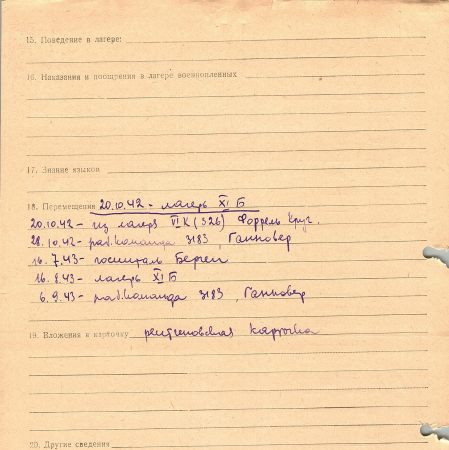 15. Поведение в лагере:
16. Наказания и поощрения в лагере военнопленных
17. Знание языков
18. Перемещения 20.10.42 - лагерь XI Б
20.10.42 - из лагеря VI К (326) Форрель Круг.
28.10.42 - раб. команда 3183, Ганновер
16.7.43 - госпиталь Берген
16.8.43 - лагерь XI Б
6.9.43 - раб. команда 3183, Ганновер
19. Вложения в карточку рентгеновская карточка
20. Другие сведения